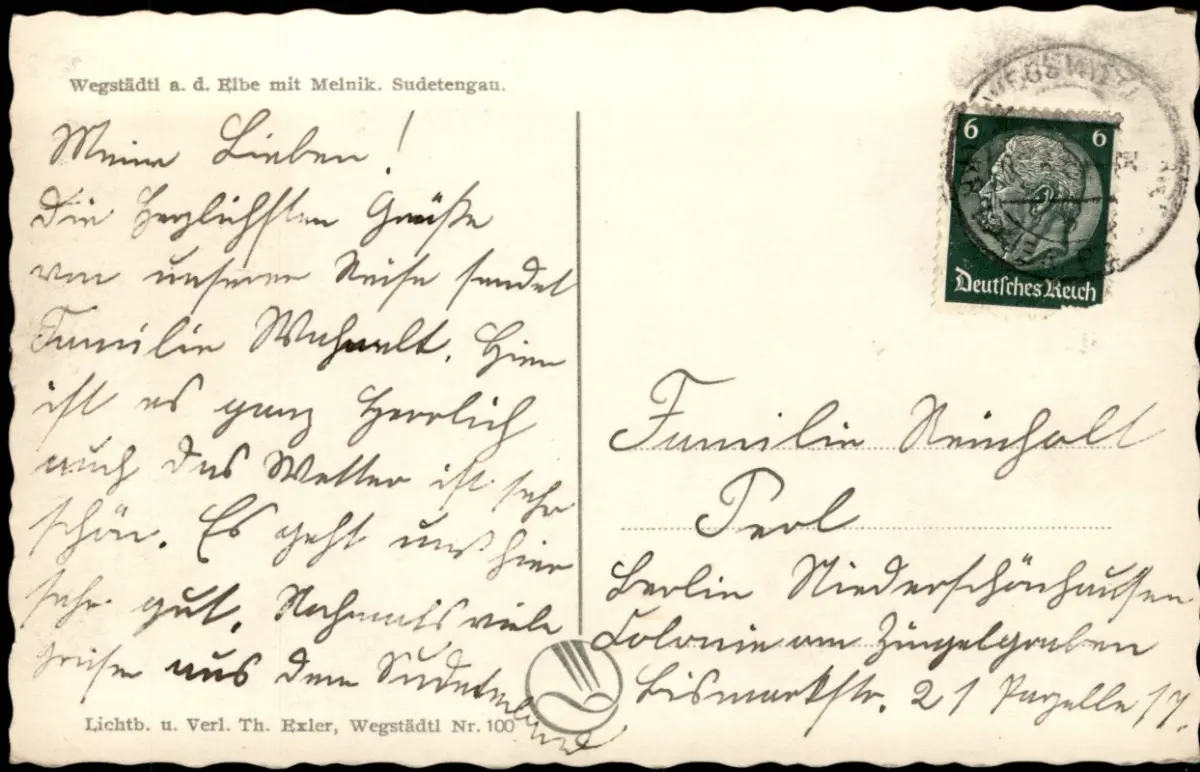 Wegstädtl a. d. Elbe mit Melnik. Sudetengau.
Meine Lieben!
Die Herzlichsten Grüße
von unserer Reise sendet
Familie. Hier
ist es ganz Herrlich
auch das Wetter ist sehr
schön. Es geht uns hier
sehr gut. Nochmals viele
Grüße aus dem Sudetenland
Lichtb. u. Verl. Th. Exler, Wegstädtl Nr. 100
6 6
Deutsches Reich
Familie Reinholt
Perl
Berlin Niederschönhausen
Colonie am Zingelgraben
Bismarkstr. 21 Parzelle 17.